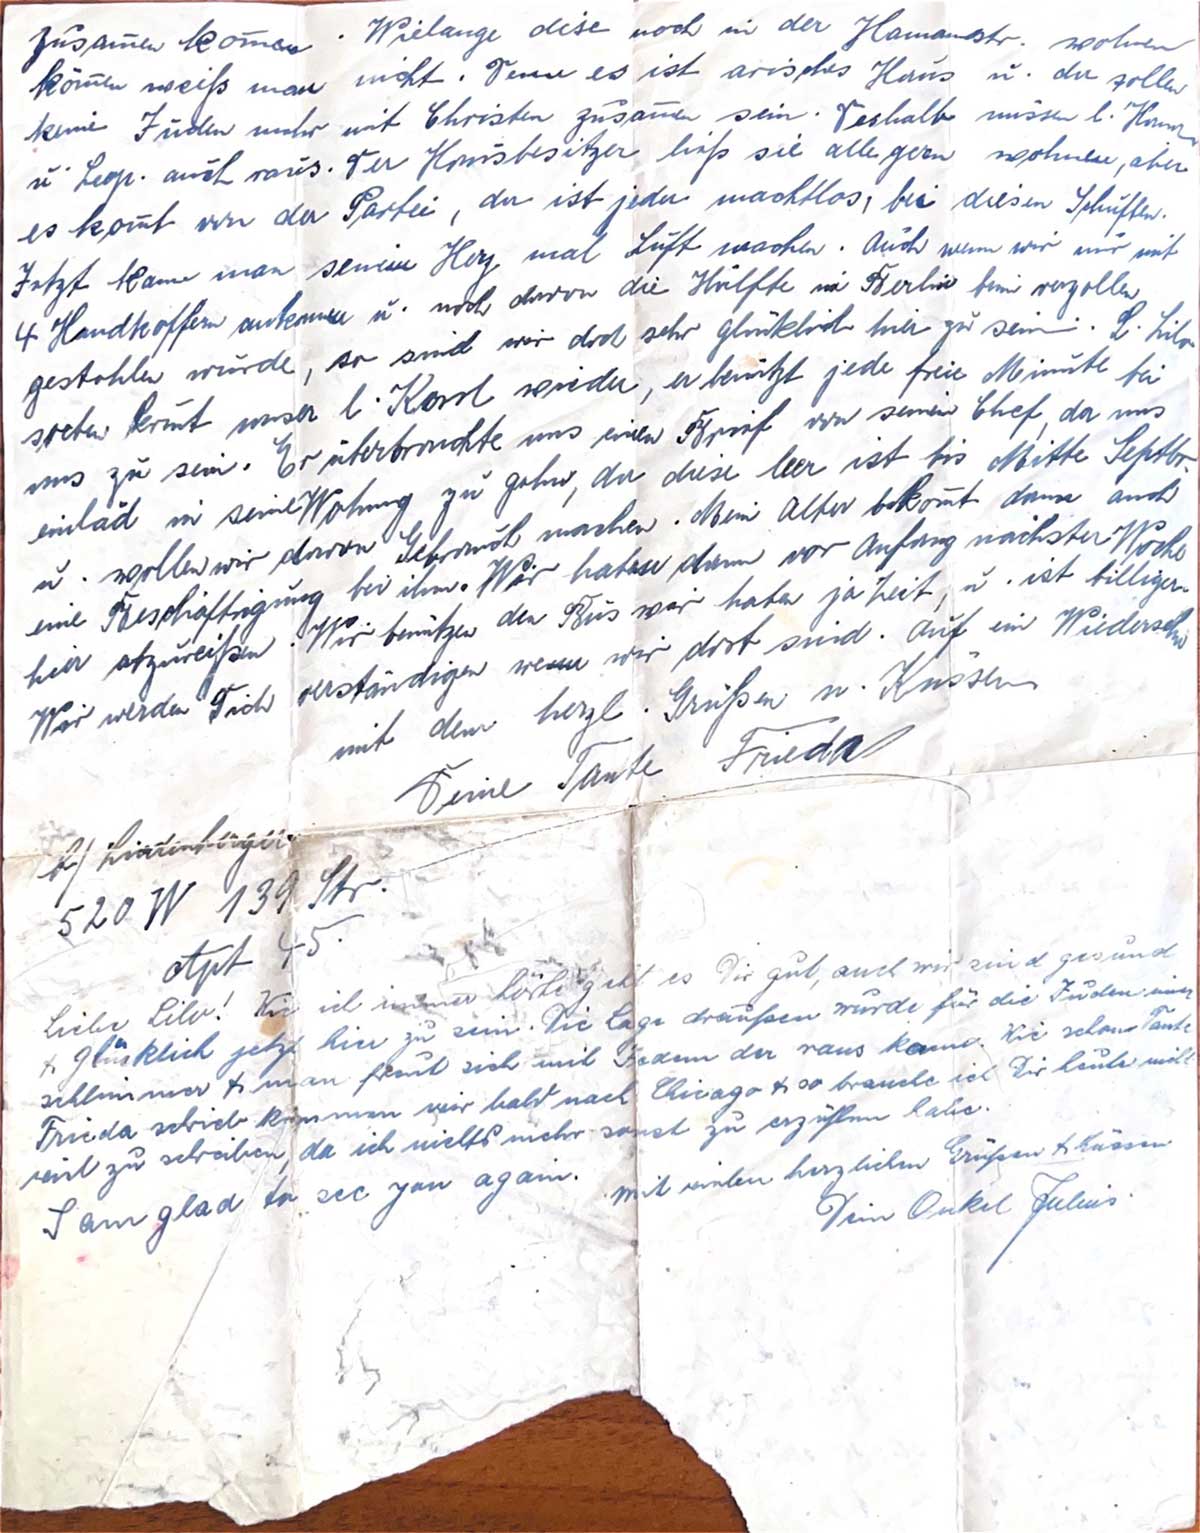 zusam̄en kom̄en. Wielange diese noch in der Hamanstr. wohnen
kön̄en weiß man nicht. Denn es ist arisches Haus u. da sollen
keine Juden mehr mit Christen zusam̄en sein. Deshalb müssen l.
u. Leop. auch raus. Der Hausbesitzer ließ sie alle gern wohnen, aber
es kom̄t von der Partei, da ist jeder machtlos, bei diesen Schuften.
Jetzt kann man seinem Herz mal Luft machen. Auch wenn wir nur mit
4 Handkoffern ankommen u. noch davon die Hälfte in Berlin beim verzollen
gestohlen wurde, so sind wir doch sehr glücklich hier zu sein. L. Lilo
soeben kom̄t unser l. Karl wieder, er benützt jede freie Minute bei
uns zu sein. Er überbrachte uns einen Brief von seinem Chef, der uns
einlad in seine Wohnung zu gehen, da diese leer ist bis Mitte Septbr.
u. wollen wir davon Gebrauch machen. Mein Alter bekom̄t dann auch
eine Beschäftigung bei ihm. Wir haben dann vor Anfang nächster Woche
hier abzureißen. Wir benützen den Bus wir haben ja Zeit, u. ist billiger.
Wir werden Dich verständigen wenn wir dort sind. Auf ein Wiedersehn
mit den herzl. Grüßen u. Küssen
Deine Tante Frieda
520 W 139 Str.
Apt 45.
Liebe Lilo! Wie ich immer hörte geht es Dir gut, auch wir sind gesund
& glücklich jetzt hier zu sein. Die Lage draußen wurde für die Juden immer
schlimmer & man freut sich mit Jedem der raus kann. Wie schon Tante
Frieda schrieb kommen wir bald nach Chicago & so brauche ich Dir heute nicht
viel zu schreiben, da ich nichts mehr sonst zu erzählen habe.
I am glad to see you again. Mit vielen herzlichen Grüßen & Küssen
Dein Onkel Julius.